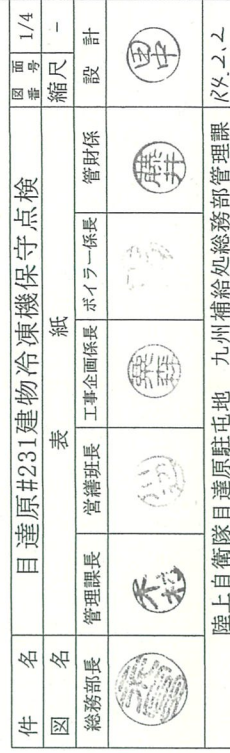 件名 目達原#231建物冷凍機保守点検 図面番号 1/4
図名 表紙 縮尺 -
総務部長 管理課長 営繕班長 工事企画係長 ボイラー係長 管財係 設計
藤井 畠中
陸上自衛隊目達原駐屯地 九州補給処総務部管理課 R4.2.2